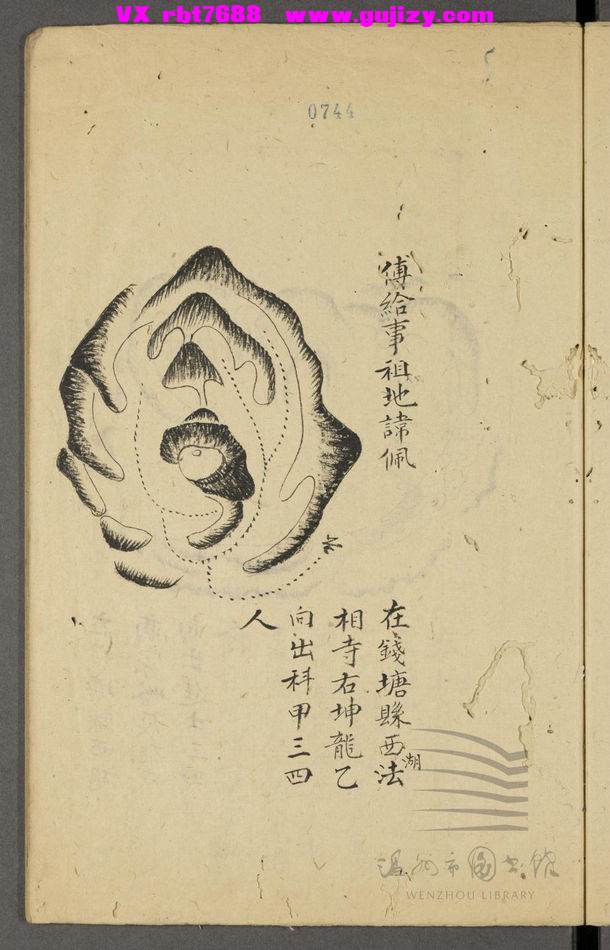 VX rbt7688 www.gujizy.com
0744
傅給事祖地諱佩
在錢塘縣西湖法
相寺右坤龍乙
向出科甲三四
人
水
温州市图书馆
WENZHOU LIBRARY